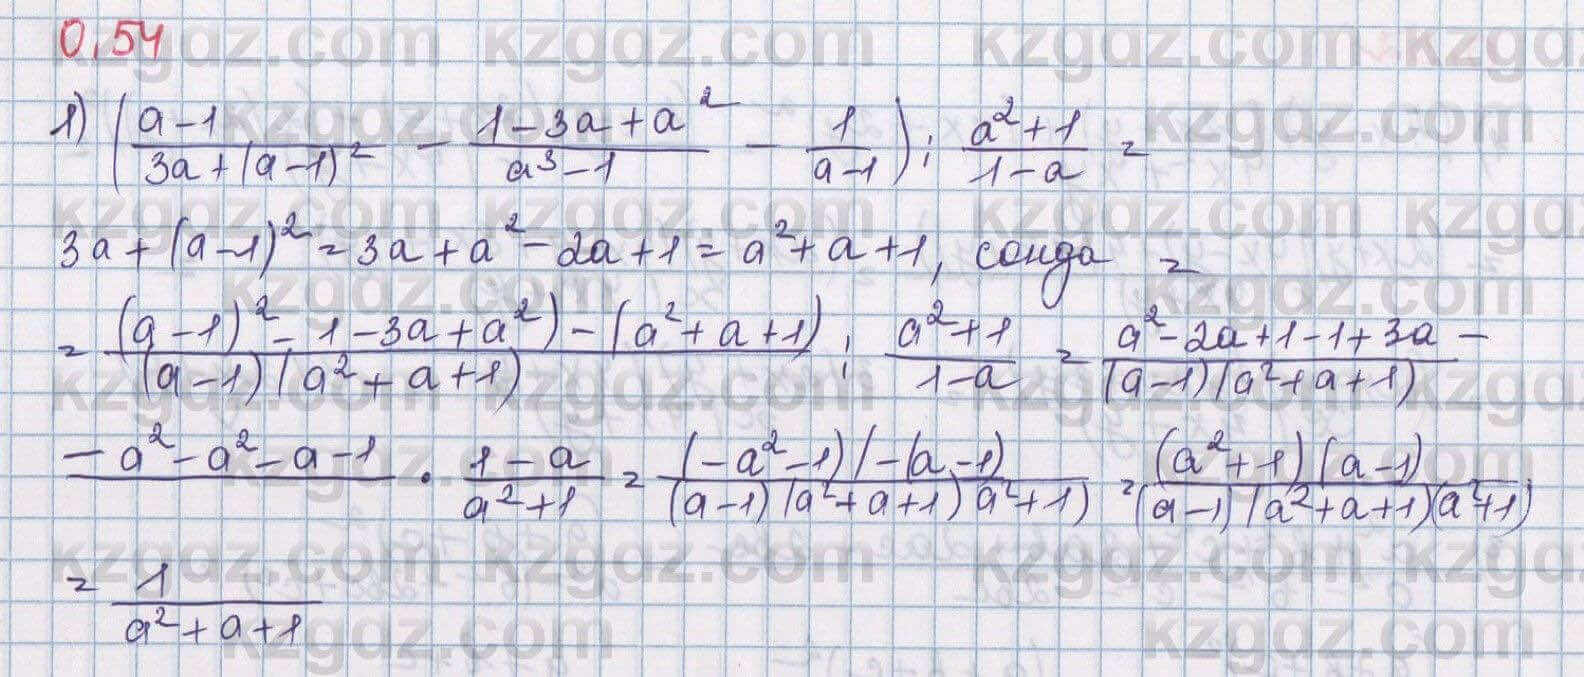 0.54
1) ((a-1)/(3a+(a-1)²) - (1-3a+a²)/(a³-1) - 1/(a-1)) : (a²+1)/(1-a) =
3a+(a-1)² = 3a+a²-2a+1 = a²+a+1, сонда =
= ((a-1)²-1-3a+a²)-(a²+a+1)/((a-1)(a²+a+1)) : (a²+1)/(1-a) = (a²-2a+1-1+3a-)/((a-1)(a²+a+1))
(-a²-a²-a-1)/ · (1-a)/(a²+1) = (-a²-1)(-(a-1)/((a-1)(a²+a+1)a²+1) = (a²+1)(a-1)/((a-1)(a²+a+1)(a²+1)
= 1/(a²+a+1)
kzgdz.com